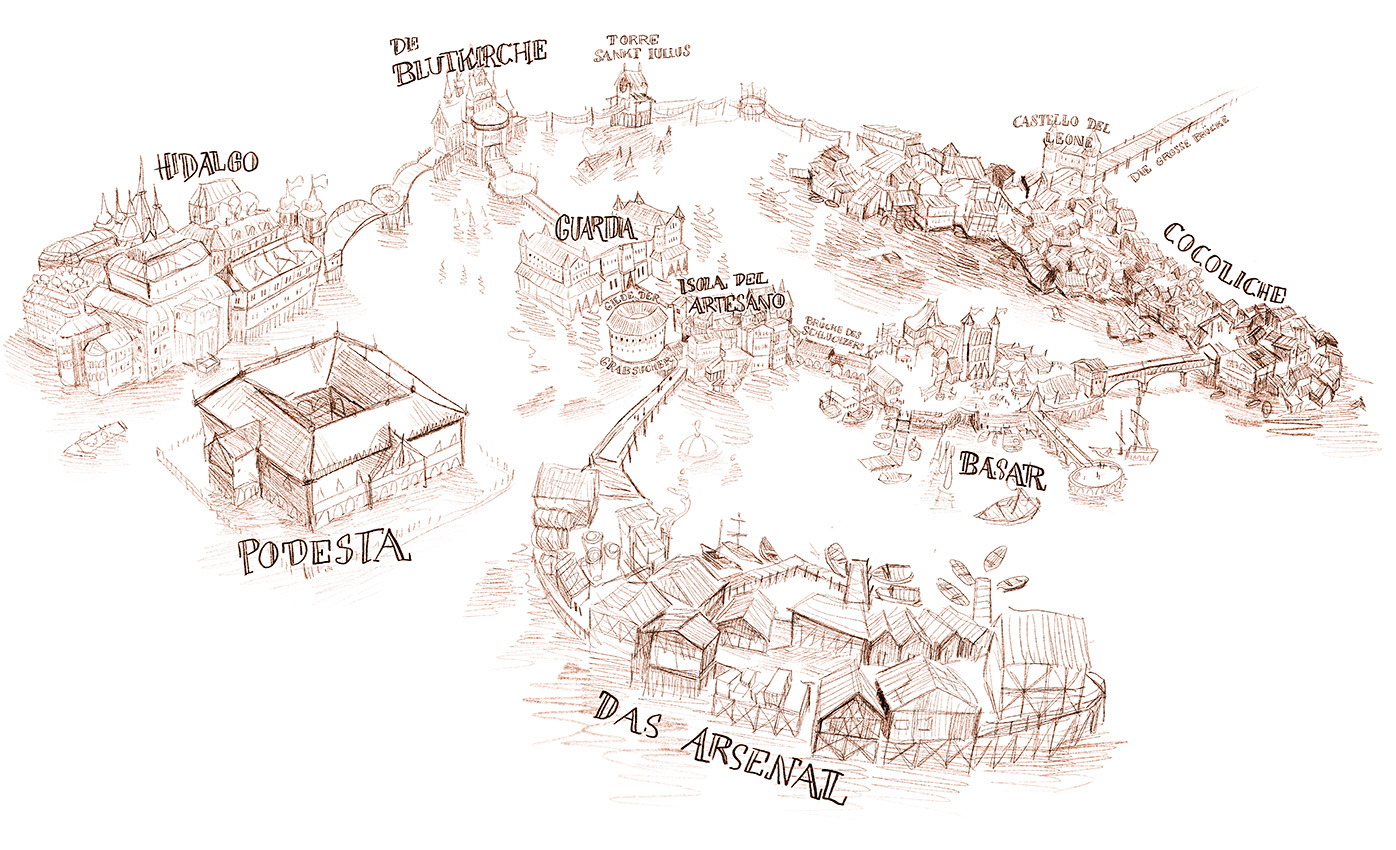 DIE
BLUTKIRCHE
TORRE
SANKT IULLUS
HIDALGO
CASTELLO DEL
LEONE
DIE GROSSE BRÜCKE
GUARDIA
COCOLICHE
ISOLA DEL
ARTESANO
GILDE DER
GRABSUCHER
BRÜCKE DES
BASAR
PODESTA
DAS ARSENAL